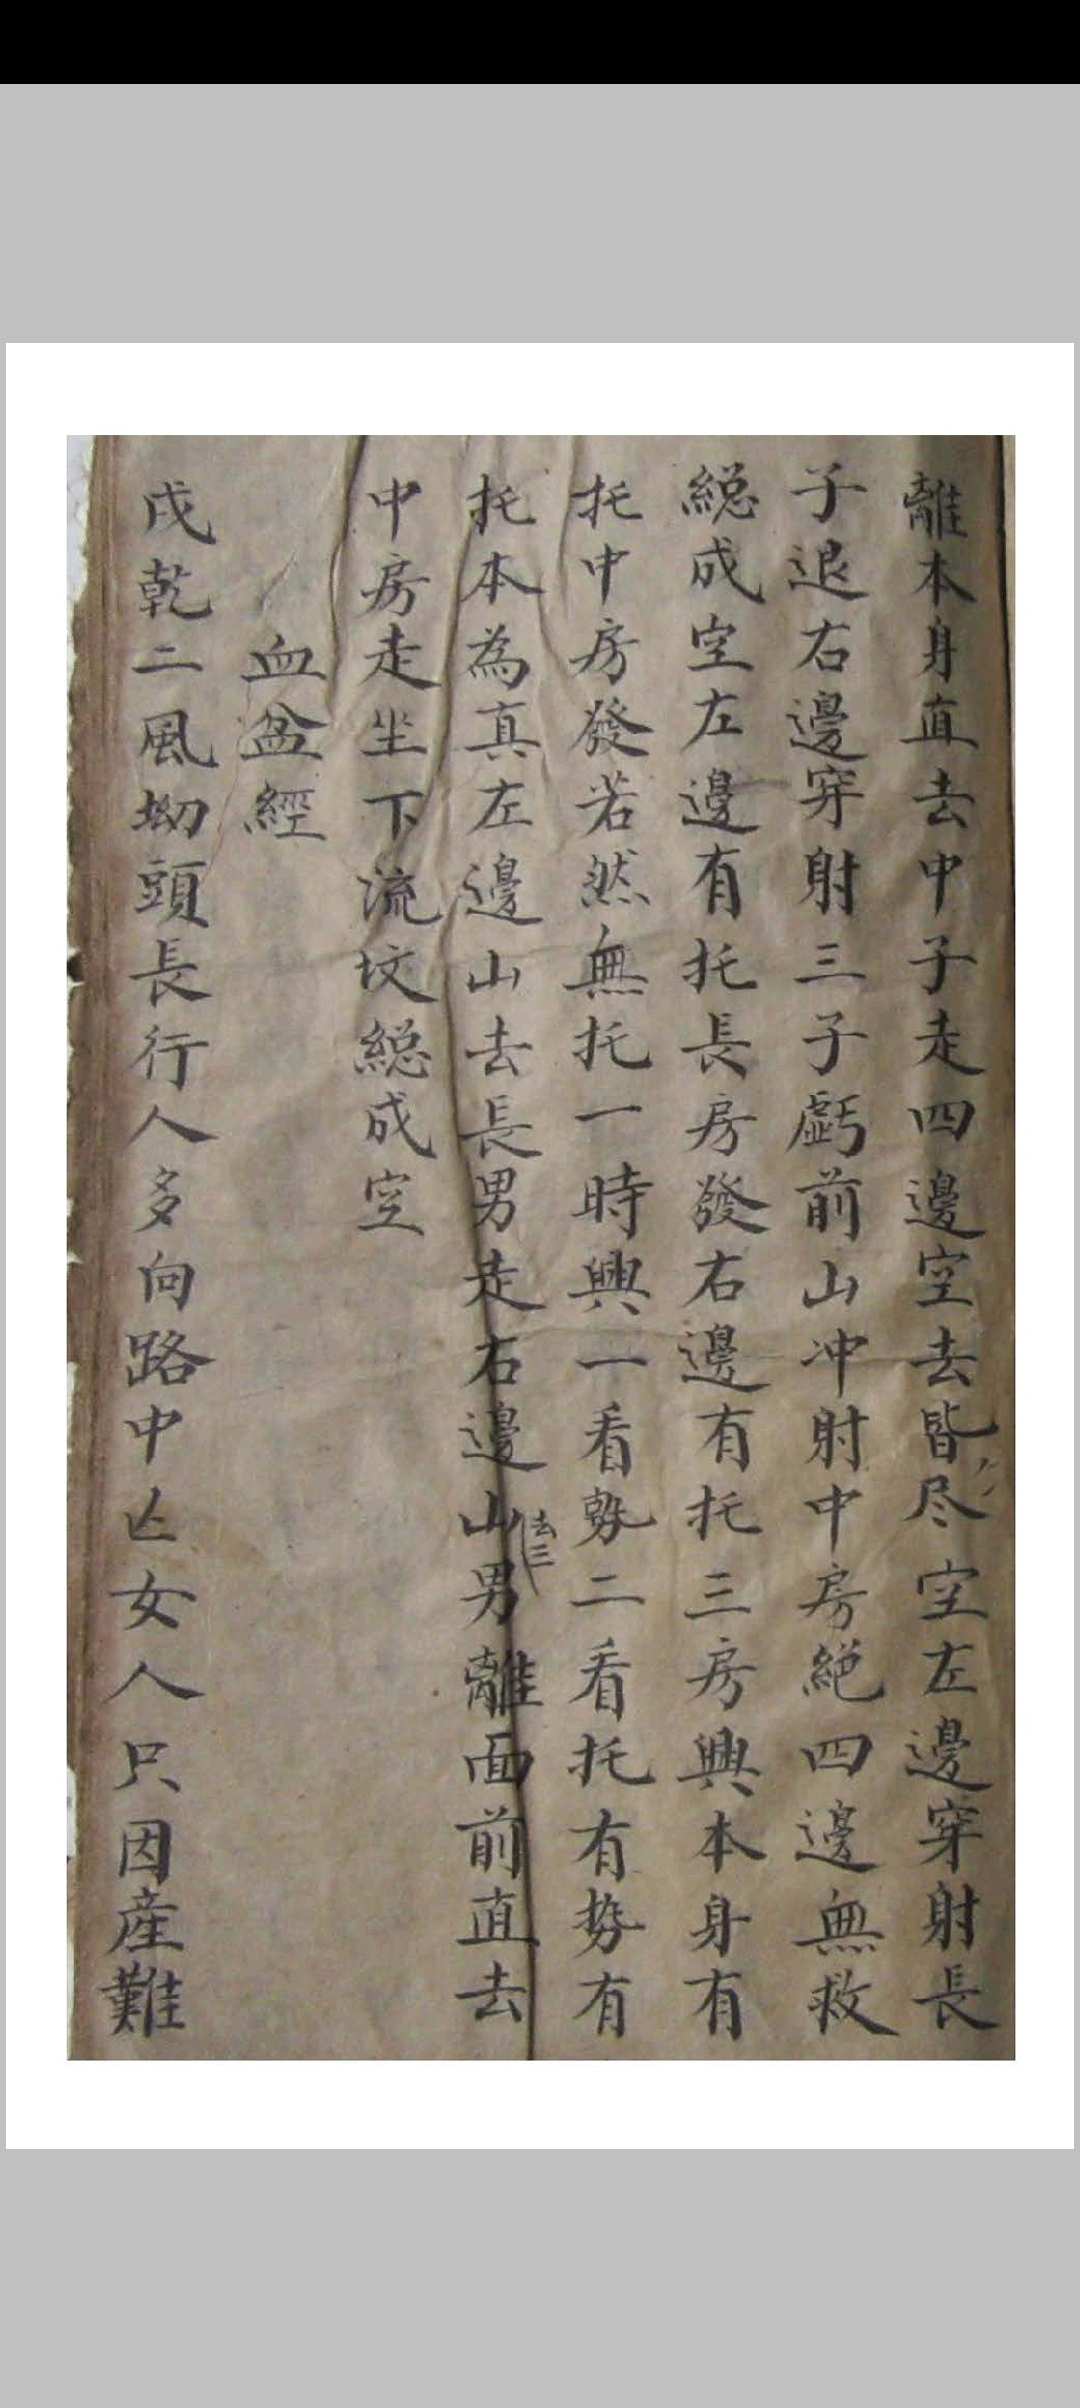 離本身直去中子走四邊空去皆尽空左邊穿射長
子退右邊穿射三子虧前山冲射中房絕四邊無救
総成空左邊有托長房發右邊有托三房興本身有
托中房發若然無托一時興一看勢二看托有勢有
托本為真左邊山去長男走右邊山去三男離面前直去
中房走坐下流坟総成空
血盆經
戌乾二風坳頭長行人多向路中亡女人只因産難